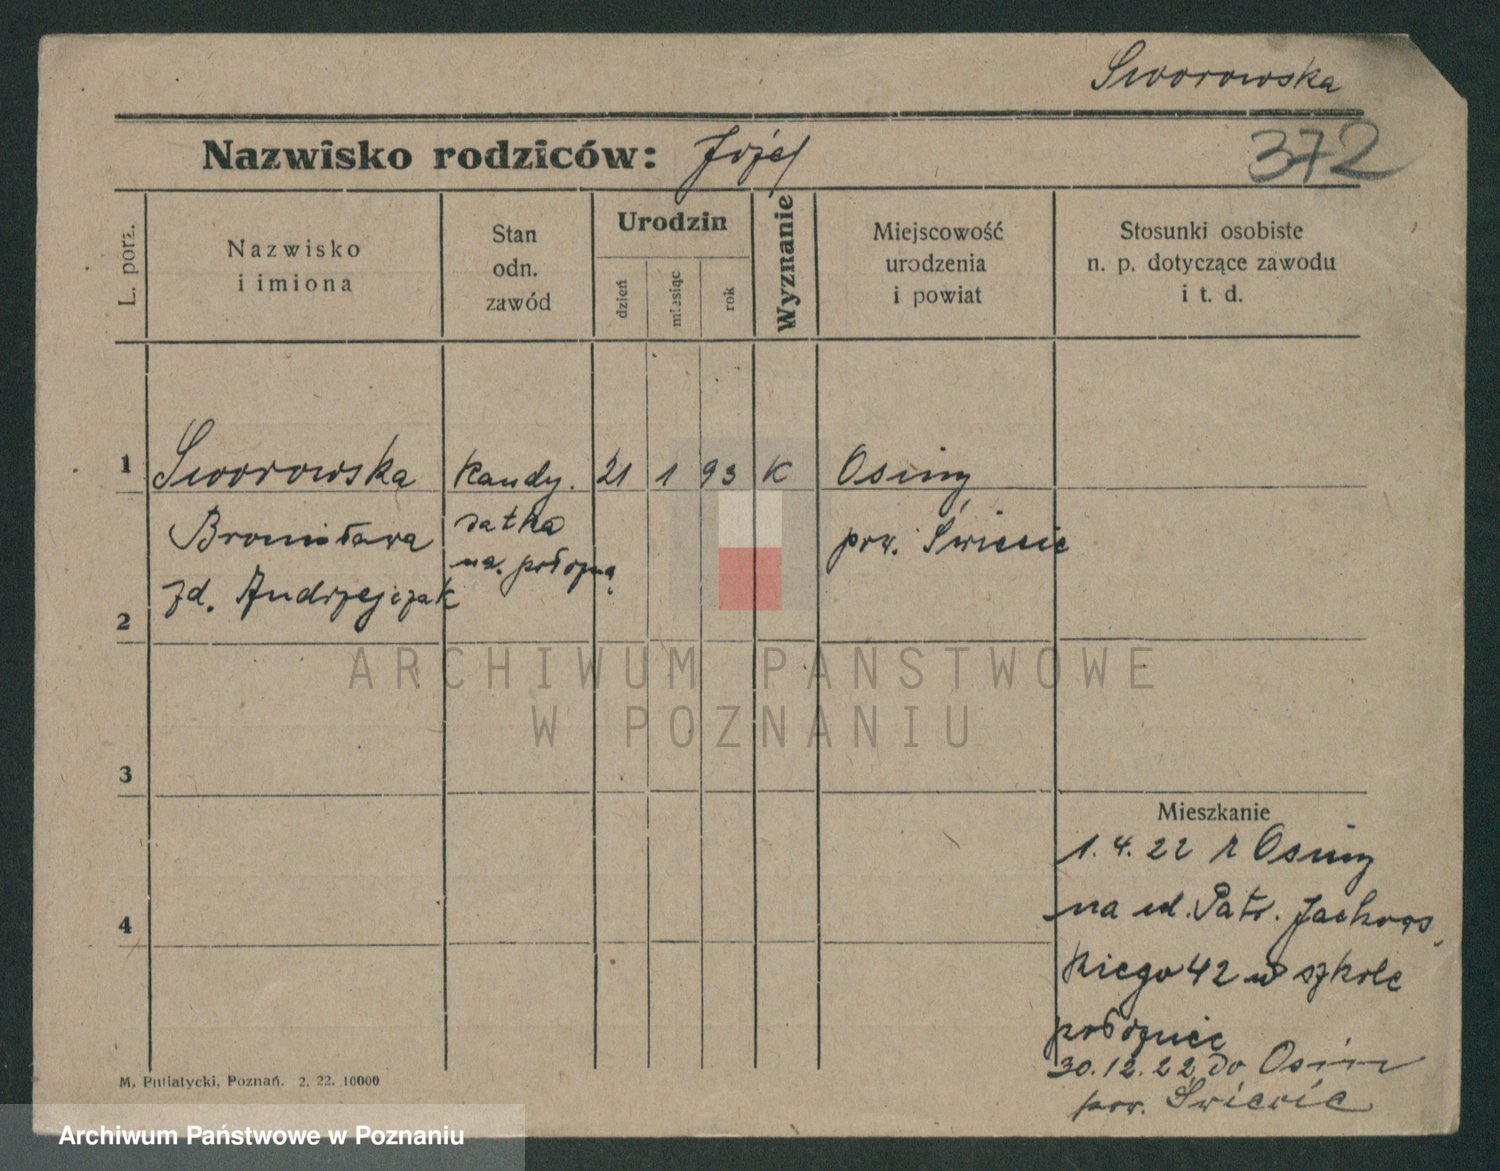 Sworowska
372
Nazwisko rodziców: Józef
L. porz.
Nazwisko
i imiona
Stan
odn.
zawód
Urodzin
dzień
miesiąc
rok
Wyznanie
Miejscowość
urodzenia
i powiat
Stosunki osobiste
n. p. dotyczące zawodu
i t. d.
1 Sworowska kandy. 21 1 93 K Osiny
Bronisława datka pow. Świecie
zd. Andrzejczak na położną
2
3
4
Mieszkanie
1.4.22 z Osiny
na ul. Patr. Jackows
kiego 42 w szkole
położnic
30.12.22 do Osin
pow. Świecie
M. Putiatycki, Poznań. 2. 22. 10000
ARCHIWUM PAŃSTWOWE
W POZNANIU
Archiwum Państwowe w Poznaniu